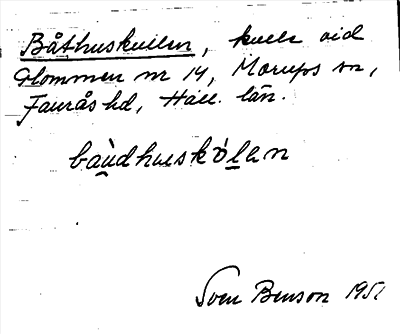 Båthuskullen, kulle vid
Glommen nr 14, Morups sn,
Faurås hd, Hall. län.
baùdhuskölen
Sven Benson 1951